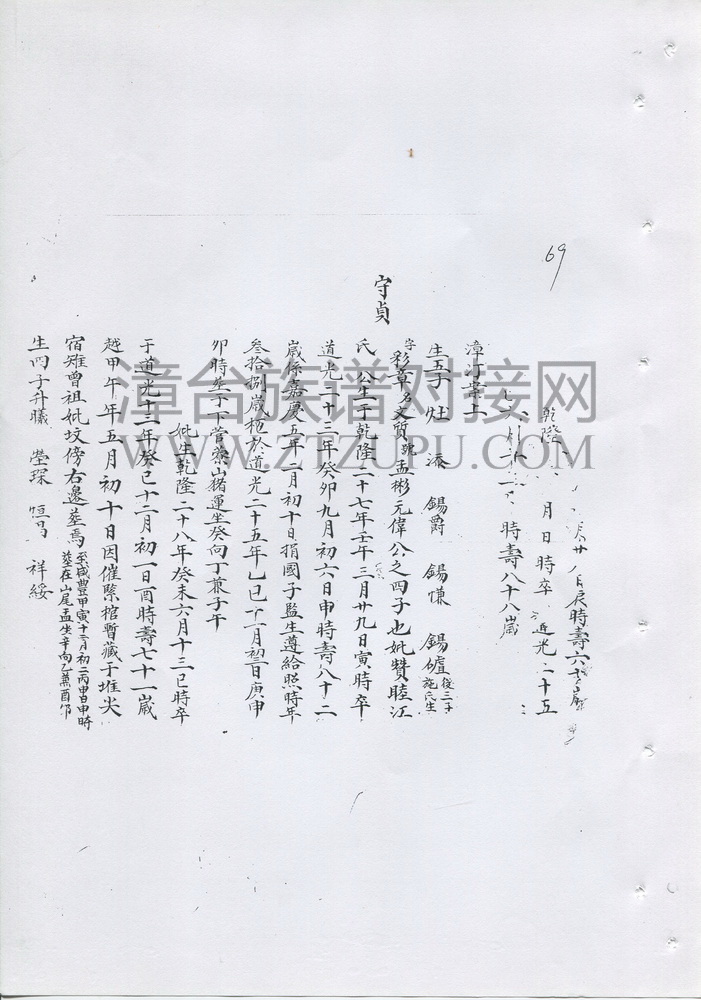 69
戌時壽六
乾隆 月日時卒 道光二十五
時壽八十八歲
漳汀 上
生五子 灶 添 錫爵 錫慊 錫爐 後三子施氏生
守貞
字彩章名文質號孟彬元偉公之四子也妣贊睦江
氏 公生于乾隆二十七年壬午三月廿九日寅時卒
道光二十三年癸卯九月初六日申時壽八十二
歲係嘉慶五年二月初十日捐國子監生遵給照時年
叁拾捌歲柩於道光二十五年乙巳十一月初三日庚申
卯時 于下菅藔山猪運坐癸向丁兼子午
妣生乾隆二十八年癸未六月十三巳時卒
于道光十三年癸巳十二月初一日酉時壽七十一歲
越甲午年五月初十日因催緊棺暫藏于堆尖
宿雉曾祖妣坟傍右邊塟焉 至咸豐甲寅十二月初二丙申日申時塟在山尾孟坐辛向乙兼酉卯
生四子升曦 瑩琛 恒昌 祥綏
漳台族谱对接网
WWW.ZTZUPU.COM